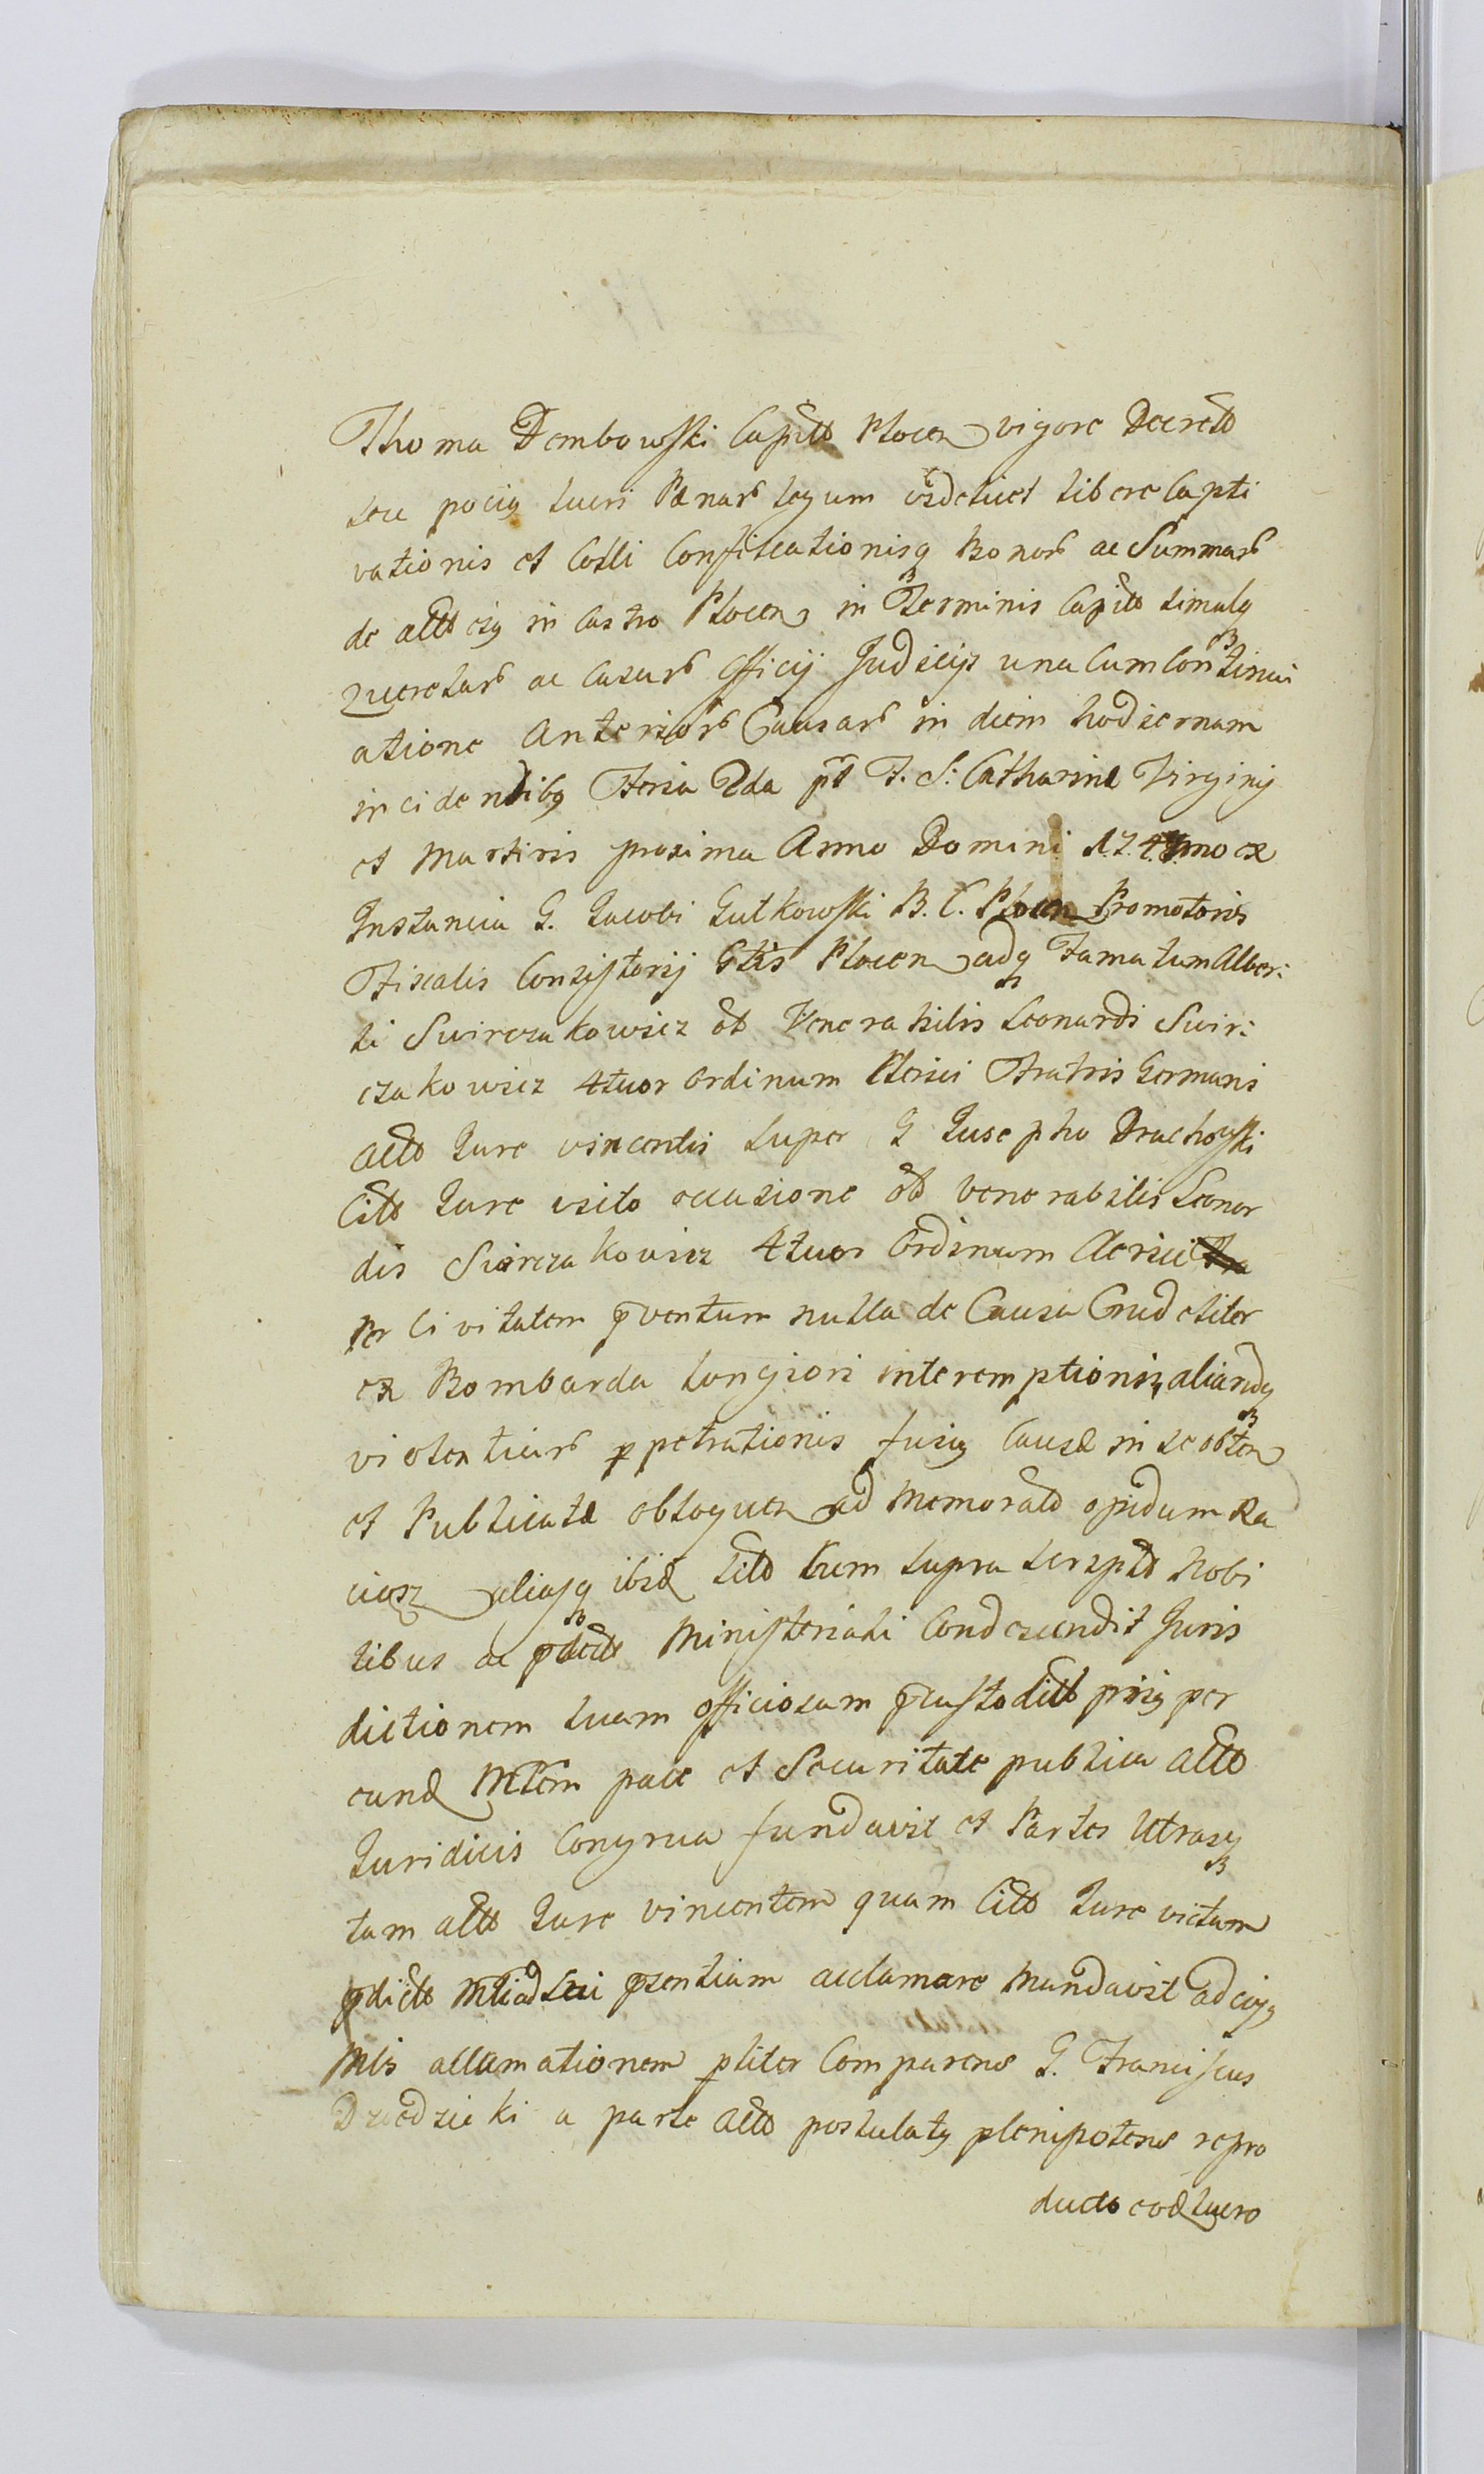 Thoma Dembowski Capitto Plocen vigore Decretto
seu pocius lucri Pænarũ legum  libere Capti
vationis et Colli Confiscationisq Bonorũ ac Summarũ
de actto eius in Castro Plocen in Terminis Capitto simulq
querelarũ ac Causarũ Officij Judicijs una cum Continu
atione Anteriorũ Causarũ in diem hodiernam
incidentibq Feria 2da pt F. S: Catharinæ Virginis
et Martiris proxima Anno Domini mo ex
Instancia G. Jacobi Gutkowski B. C. Plocen Promotoris
Fiscalis Consistorij Gtis Plocen adq Famatum Alber:
ti Swirczakowicz ob Venerabilis Leonardi Swir:
czakowicz 4tuor Ordinum Clerici Fratris Germani
actto Jure vincentis super G Josepho Drachowski
Citto Jure victo occasione ob venerabilis Leonar
dis Swirczakowicz 4tuor Ordinum Clerici
per Civitatem pventum nulla de Causa Crudeliter
ex Bombarda longiori interemptionis, aliarudq
violentiarũ ppetrationis fusius Causæ in se obten
et Publicatæ obloquen ad memoratto opidum Ra
ciąz aliasq ibid sitto Cum supra scriptto Nobi
libus ac pdictto Ministeriali Condescendit Juris
dictionem suam officiosam custoditto prius per
eund Mtem pace et Securitate publica actto
Juridicis Congrua fundavit et Partes Utrasq
tam actto Jure vincentem quam Citto Jure victam
pdictto Mtialui psentiam acclamare mandavit ad cujq
Mlis acclamationem pliter Comparens G. Franciscus
Dziedzicki a parte actto postulatq plenipotens repro
ducto eod lucro